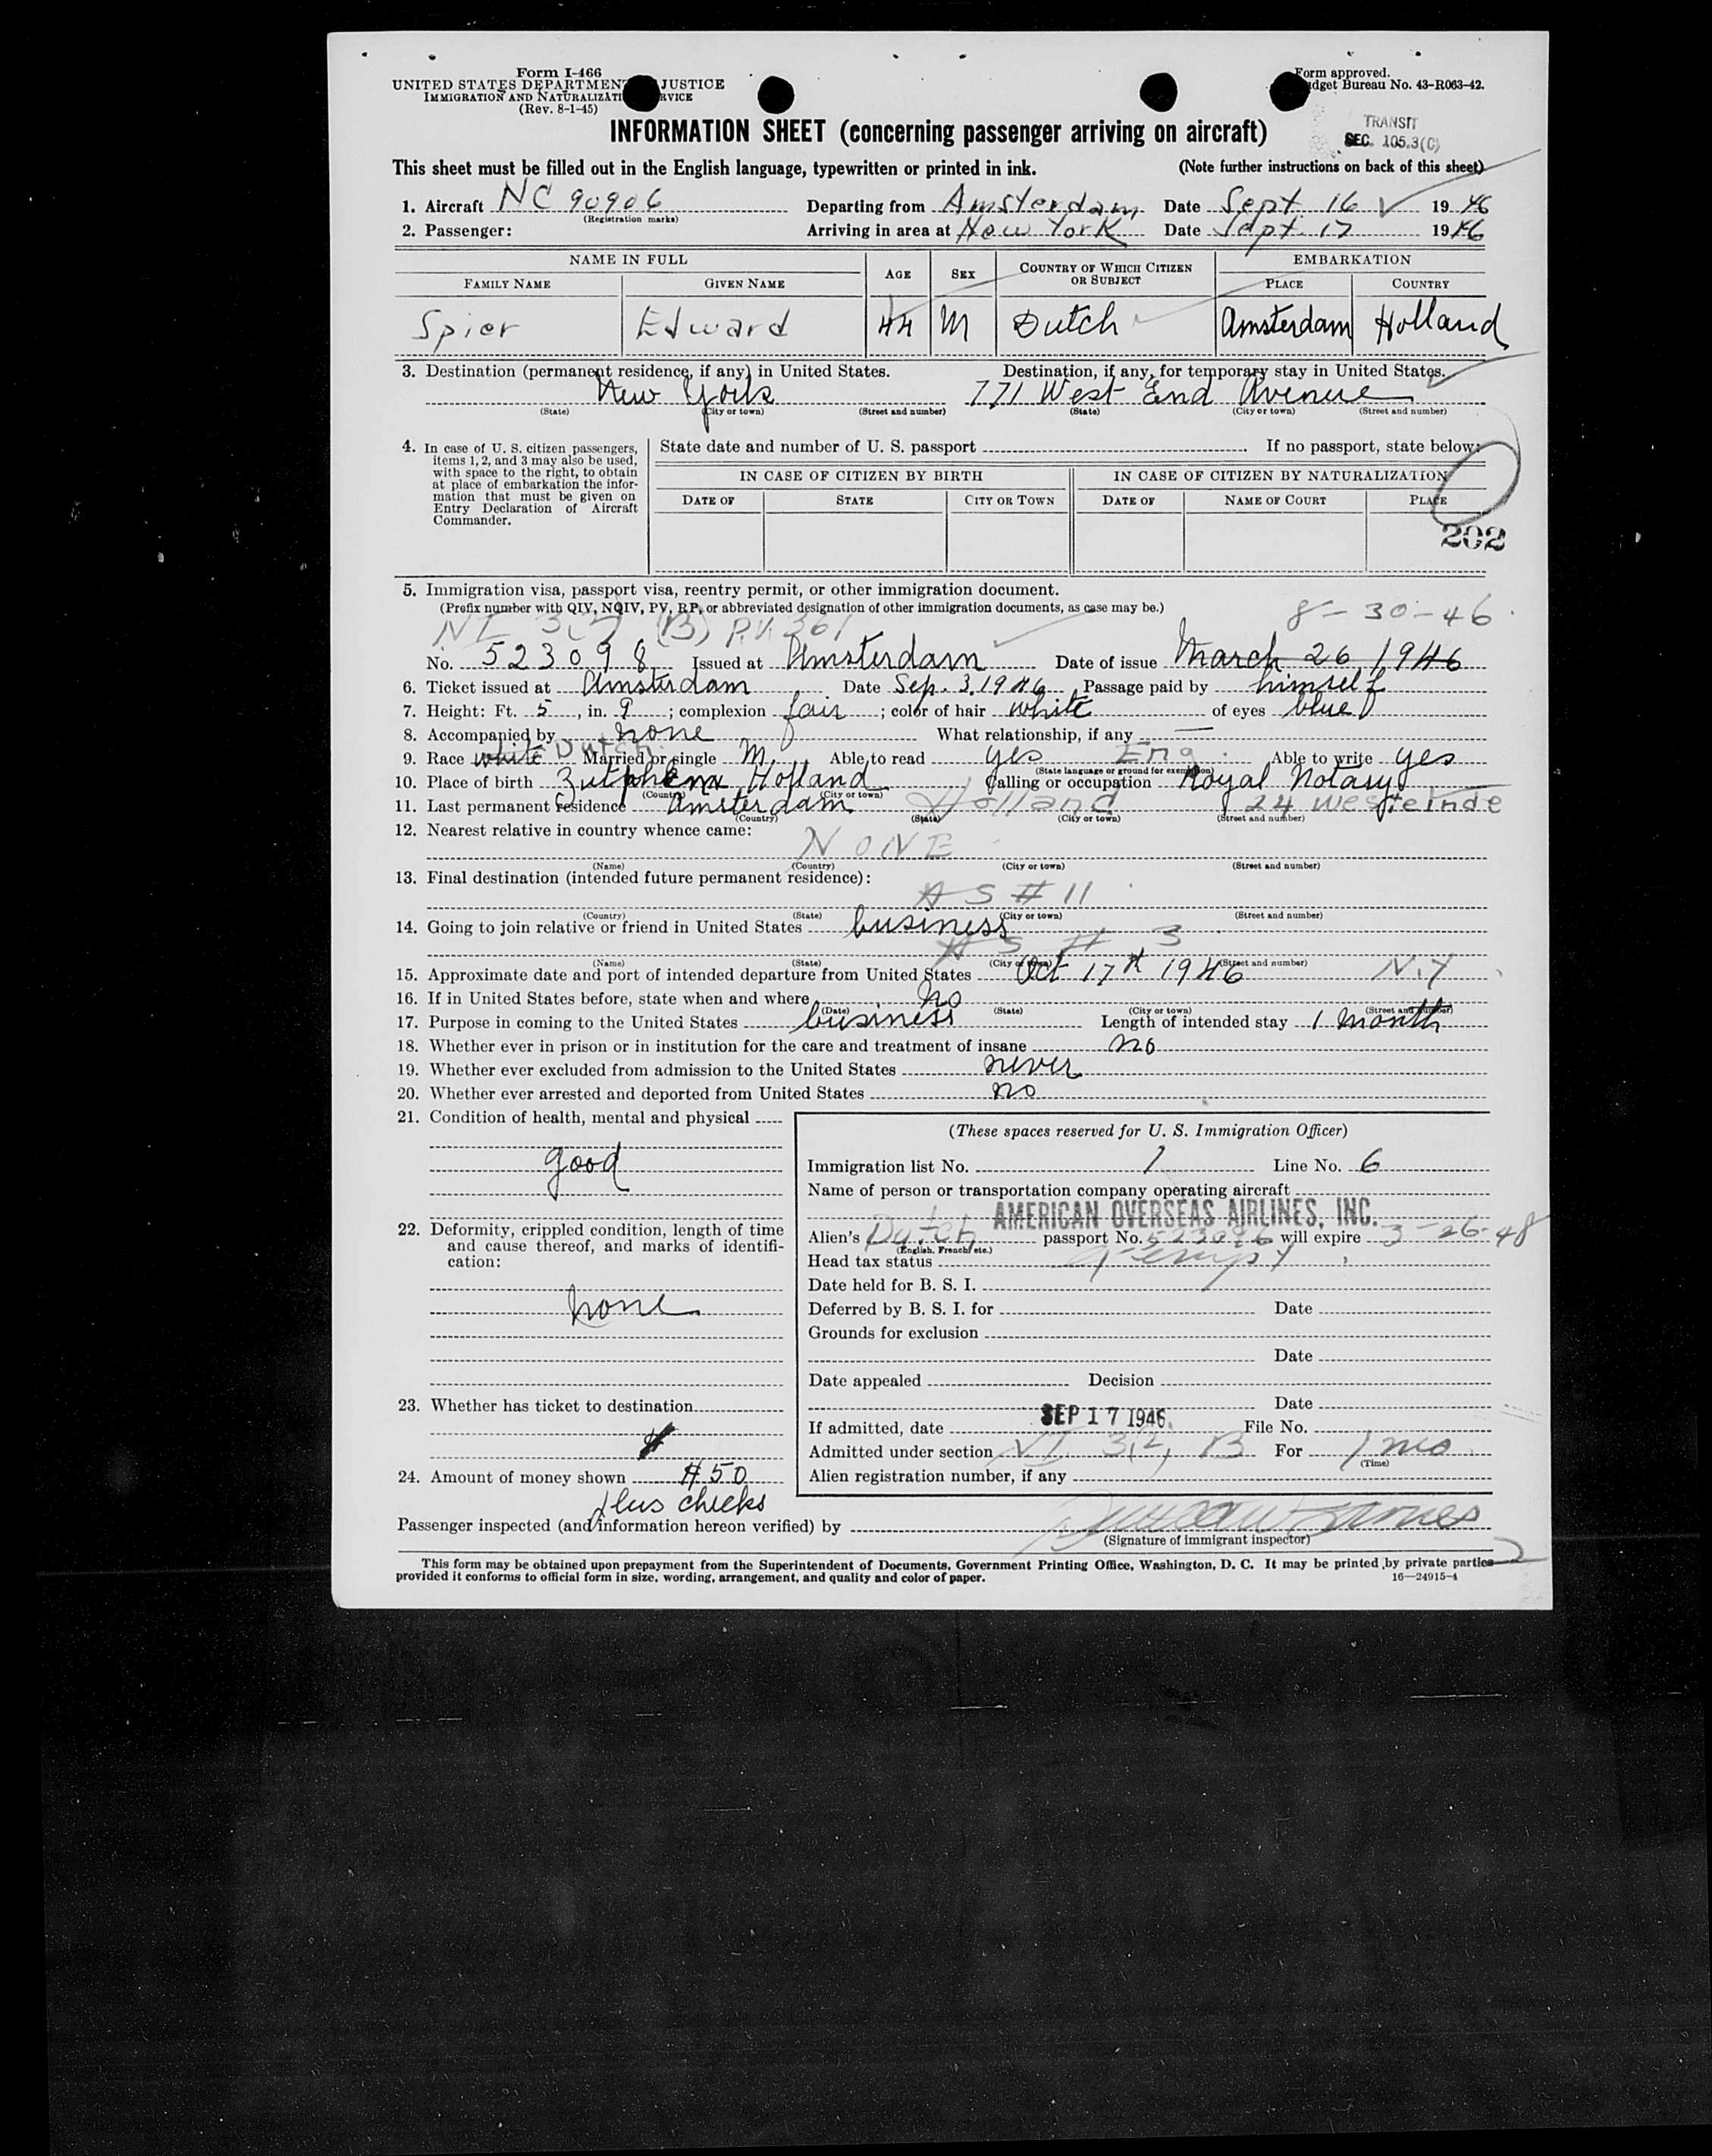 Form I-466
UNITED STATES DEPARTMENT JUSTICE
IMMIGRATION AND NATURALIZATI RVICE
(Rev. 8-1-45)
Form approved.
dget Bureau No. 43-R063-42.
INFORMATION SHEET (concerning passenger arriving on aircraft)
TRANSIT
SEC. 105.3(C)
This sheet must be filled out in the English language, typewritten or printed in ink. (Note further instructions on back of this sheet)
1. Aircraft NC 90906 Departing from Amsterdam Date Sept 16 1946
(Registration marks)
2. Passenger: Arriving in area at New York Date Sept. 17 1946
NAME IN FULL AGE SEX COUNTRY OF WHICH CITIZEN OR SUBJECT EMBARKATION
FAMILY NAME GIVEN NAME PLACE COUNTRY
Spier Edward 44 M Dutch Amsterdam Holland
3. Destination (permanent residence, if any) in United States. Destination, if any, for temporary stay in United States.
New York 771 West End Avenue
(State) (City or town) (Street and number) (State) (City or town) (Street and number)
4. In case of U. S. citizen passengers, items 1, 2, and 3 may also be used, with space to the right, to obtain at place of embarkation the information that must be given on Entry Declaration of Aircraft Commander.
State date and number of U. S. passport If no passport, state below:
IN CASE OF CITIZEN BY BIRTH IN CASE OF CITIZEN BY NATURALIZATION
DATE OF STATE CITY OR TOWN DATE OF NAME OF COURT PLACE
202
5. Immigration visa, passport visa, reentry permit, or other immigration document.
(Prefix number with QIV, NQIV, PV, RP, or abbreviated designation of other immigration documents, as case may be.)
NI 3(2) (B) P.V. 361 8-30-46
No. 523098 Issued at Amsterdam Date of issue March 26, 1946
6. Ticket issued at Amsterdam Date Sep. 3. 1946 Passage paid by himself
7. Height: Ft. 5, in. 9; complexion fair; color of hair white of eyes blue
8. Accompanied by none What relationship, if any —
9. Race white Dutch Married or single M. Able to read yes Eng. Able to write yes
(State language or ground for exemption)
10. Place of birth Zutphen Holland Calling or occupation Royal Notary
(Country) (City or town)
11. Last permanent residence Amsterdam Holland 24 Westeinde
(Country) (State) (City or town) (Street and number)
12. Nearest relative in country whence came:
NONE
(Name) (Country) (City or town) (Street and number)
13. Final destination (intended future permanent residence):
AS # 11
(Country) (State) (City or town) (Street and number)
14. Going to join relative or friend in United States business
AS # 3
(Name) (State) (City or town) (Street and number)
15. Approximate date and port of intended departure from United States Oct 17th 1946 N.Y
16. If in United States before, state when and where no
(Date) (State) (City or town) (Street and number)
17. Purpose in coming to the United States business Length of intended stay 1 month
18. Whether ever in prison or in institution for the care and treatment of insane no
19. Whether ever excluded from admission to the United States never
20. Whether ever arrested and deported from United States no
21. Condition of health, mental and physical
good
22. Deformity, crippled condition, length of time and cause thereof, and marks of identification:
none
23. Whether has ticket to destination
24. Amount of money shown $50
plus checks
(These spaces reserved for U. S. Immigration Officer)
Immigration list No. 1 Line No. 6
Name of person or transportation company operating aircraft
AMERICAN OVERSEAS AIRLINES, INC.
Alien's Dutch passport No. will expire 3-26-48
(English, French, etc.)
Head tax status
Date held for B. S. I.
Deferred by B. S. I. for Date
Grounds for exclusion
Date
Date appealed Decision
Date
If admitted, date SEP 17 1946 File No.
Admitted under section VI 3(2) B For 1 mo.
(Time)
Alien registration number, if any
Passenger inspected (and information hereon verified) by
(Signature of immigrant inspector)
This form may be obtained upon prepayment from the Superintendent of Documents, Government Printing Office, Washington, D. C. It may be printed by private parties
provided it conforms to official form in size, wording, arrangement, and quality and color of paper. 16—24915-4